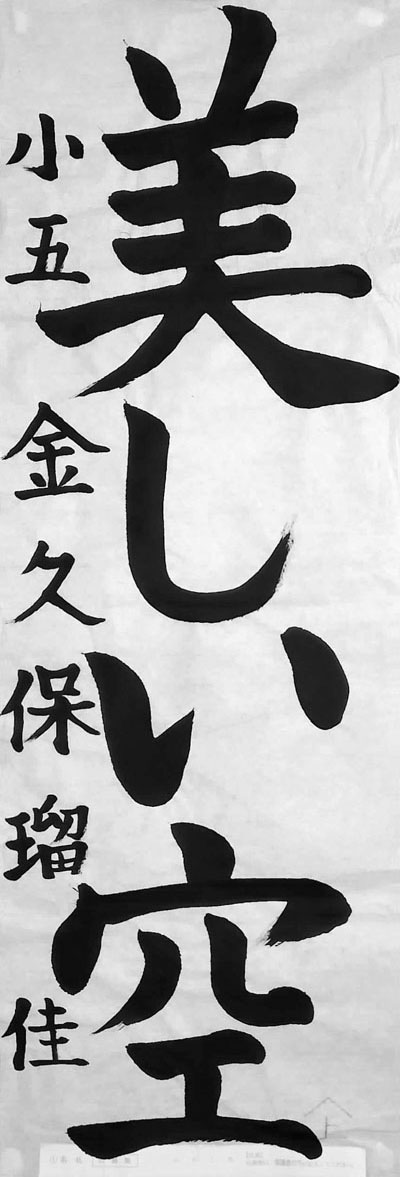 美しい空
小五 金久保瑠佳